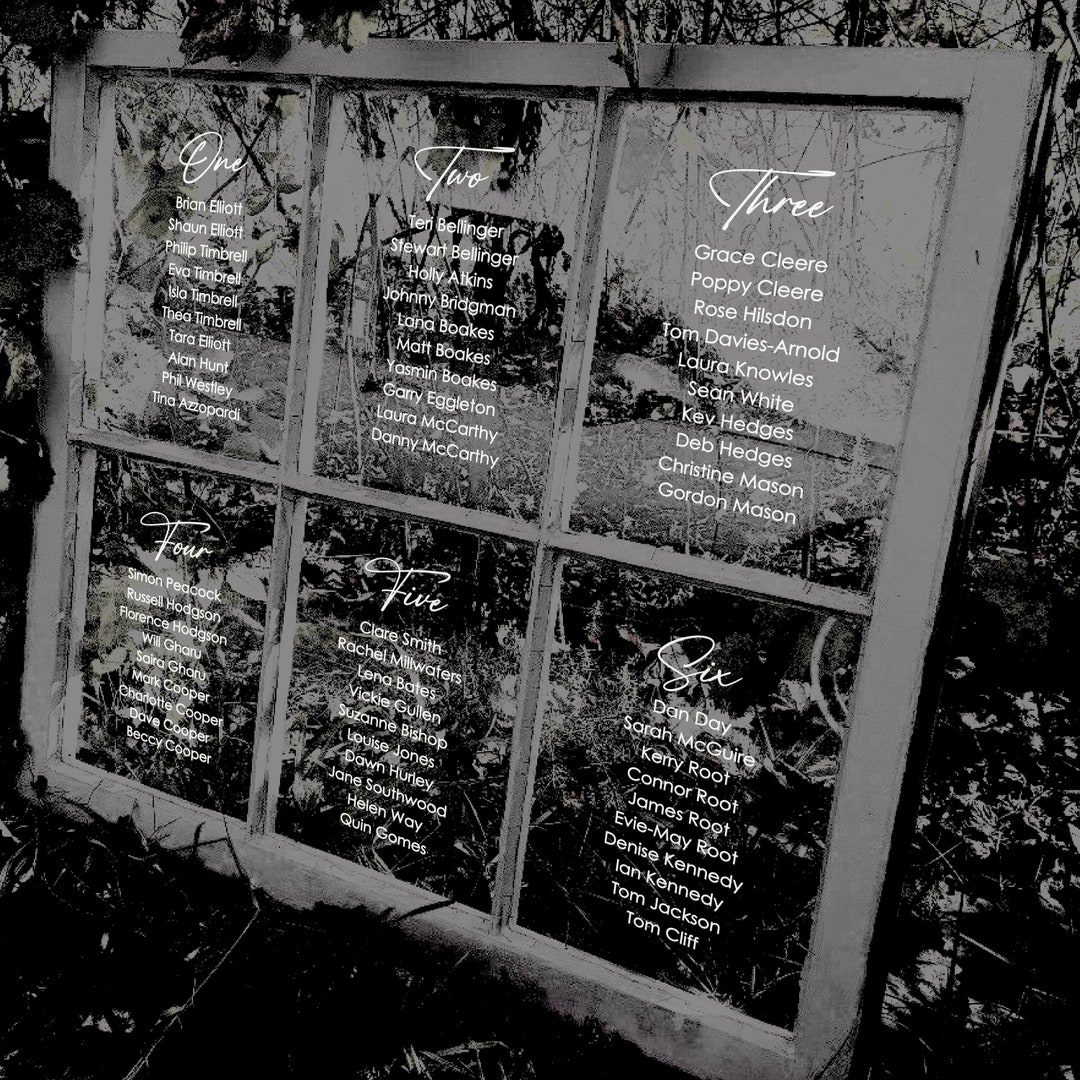 One
Brian Elliott
Shaun Elliott
Philip Timbrell
Eva Timbrell
Isla Timbrell
Thea Timbrell
Tara Elliott
Alan Hunt
Phil Westley
Tina Azzopardi
Two
Teri Bellinger
Stewart Bellinger
Holly Atkins
Johnny Bridgman
Lana Boakes
Matt Boakes
Yasmin Boakes
Garry Eggleton
Laura McCarthy
Danny McCarthy
Three
Grace Cleere
Poppy Cleere
Rose Hilsdon
Tom Davies-Arnold
Laura Knowles
Sean White
Kev Hedges
Deb Hedges
Christine Mason
Gordon Mason
Four
Simon Peacock
Russell Hodgson
Florence Hodgson
Will Gharu
Saira Gharu
Mark Cooper
Charlotte Cooper
Dave Cooper
Beccy Cooper
Five
Clare Smith
Rachel Millwaters
Lena Bates
Vickie Gullen
Suzanne Bishop
Louise Jones
Dawn Hurley
Jane Southwood
Helen Way
Quin Gomes
Six
Dan Day
Sarah McGuire
Kerry Root
Connor Root
James Root
Evie-May Root
Denise Kennedy
Ian Kennedy
Tom Jackson
Tom Cliff